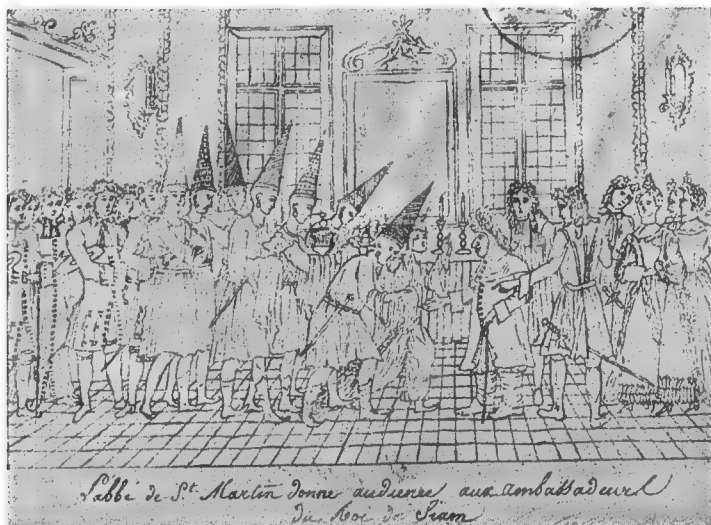 L'abbé de S.t Martin donne audience aux ambassadeurs
du Roi de Siam